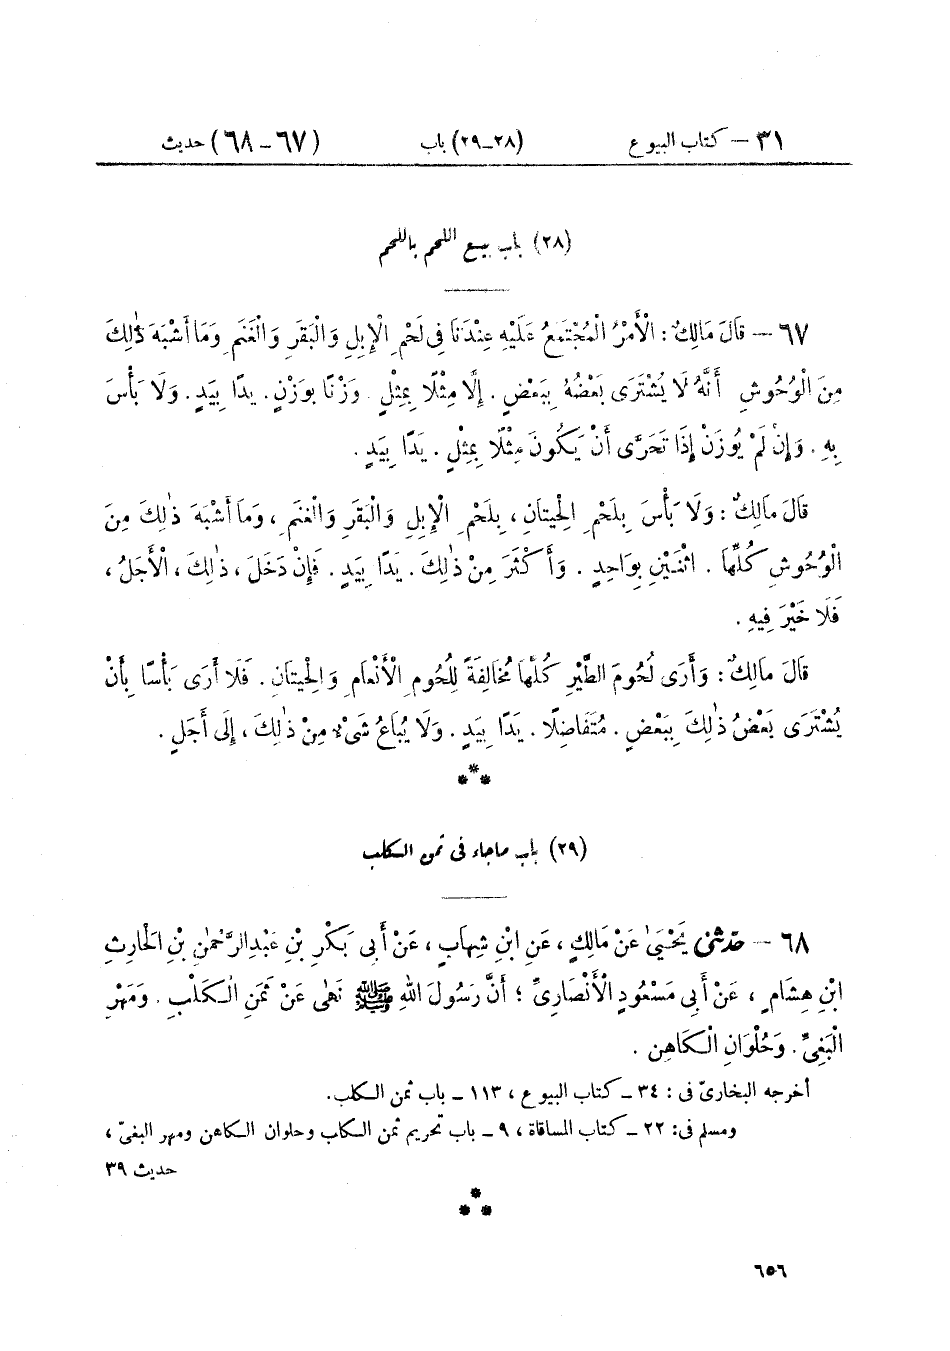 ٣١ – كتاب البيوع (٢٨-٢٩) باب (٦٧-٦٨) حديث
(٢٨) باب بيع اللحم باللحم
٦٧ – قَالَ مَالِكٌ: الْأَمْرُ الْمُجْتَمَعُ عَلَيْهِ عِنْدَنَا فِى لَحْمِ الْإِبِلِ وَالْبَقَرِ وَالْغَنَمِ وَمَا أَشْبَهَ ذٰلِكَ
مِنَ الْوُحُوشِ أَنَّهُ لَا يُشْتَرَى بَعْضُهُ بِبَعْضٍ. إِلَّا مِثْلًا بِمِثْلٍ. وَزْنًا بِوَزْنٍ. يَدًا بِيَدٍ. وَلَا بَأْسَ
بِهِ. وَإِنْ لَمْ يُوزَنْ إِذَا تَحَرَّى أَنْ يَكُونَ مِثْلًا بِمِثْلٍ. يَدًا بِيَدٍ.
قَالَ مَالِكٌ: وَلَا بَأْسَ بِلَحْمِ الْحِيتَانِ، بِلَحْمِ الْإِبِلِ وَالْبَقَرِ وَالْغَنَمِ، وَمَا أَشْبَهَ ذٰلِكَ مِنَ
الْوُحُوشِ كُلِّهَا. اثْنَيْنِ بِوَاحِدٍ. وَأَكْثَرَ مِنْ ذٰلِكَ. يَدًا بِيَدٍ. فَإِنْ دَخَلَ، ذٰلِكَ، الْأَجَلُ،
فَلَا خَيْرَ فِيهِ.
قَالَ مَالِكٌ: وَأَرَى لُحُومَ الطَّيْرِ كُلَّهَا مُخَالِفَةً لِلُحُومِ الْأَنْعَامِ وَالْحِيتَانِ. فَلَا أَرَى بَأْسًا بِأَنْ
يُشْتَرَى بَعْضُ ذٰلِكَ بِبَعْضٍ. مُتَفَاضِلًا. يَدًا بِيَدٍ. وَلَا يُبَاعُ شَىْءٌ مِنْ ذٰلِكَ، إِلَى أَجَلٍ.
***
(٢٩) باب ماجاء فى ثمن الكلب
٦٨ – حدثنى يَحْيَىٰ عَنْ مَالِكٍ، عَنِ ابْنِ شِهَابٍ، عَنْ أَبِى بَكْرِ بْنِ عَبْدِالرَّحْمٰنِ بْنِ الْحَارِثِ
ابْنِ هِشَامٍ، عَنْ أَبِى مَسْعُودٍ الْأَنْصَارِىِّ؛ أَنَّ رَسُولَ اللهِ ﷺ نَهَى عَنْ ثَمَنِ الْكَلْبِ. وَمَهْرِ
الْبَغِىِّ. وَحُلْوَانِ الْكَاهِنِ.
أخرجه البخارىّ فى: ٣٤ – كتاب البيوع، ١١٣ – باب ثمن الكلب.
ومسلم فى: ٢٢ – كتاب المساقاة، ٩ – باب تحريم ثمن الكلب وحلوان الكاهن ومهر البغىّ،
حديث ٣٩
***
٦٥٦